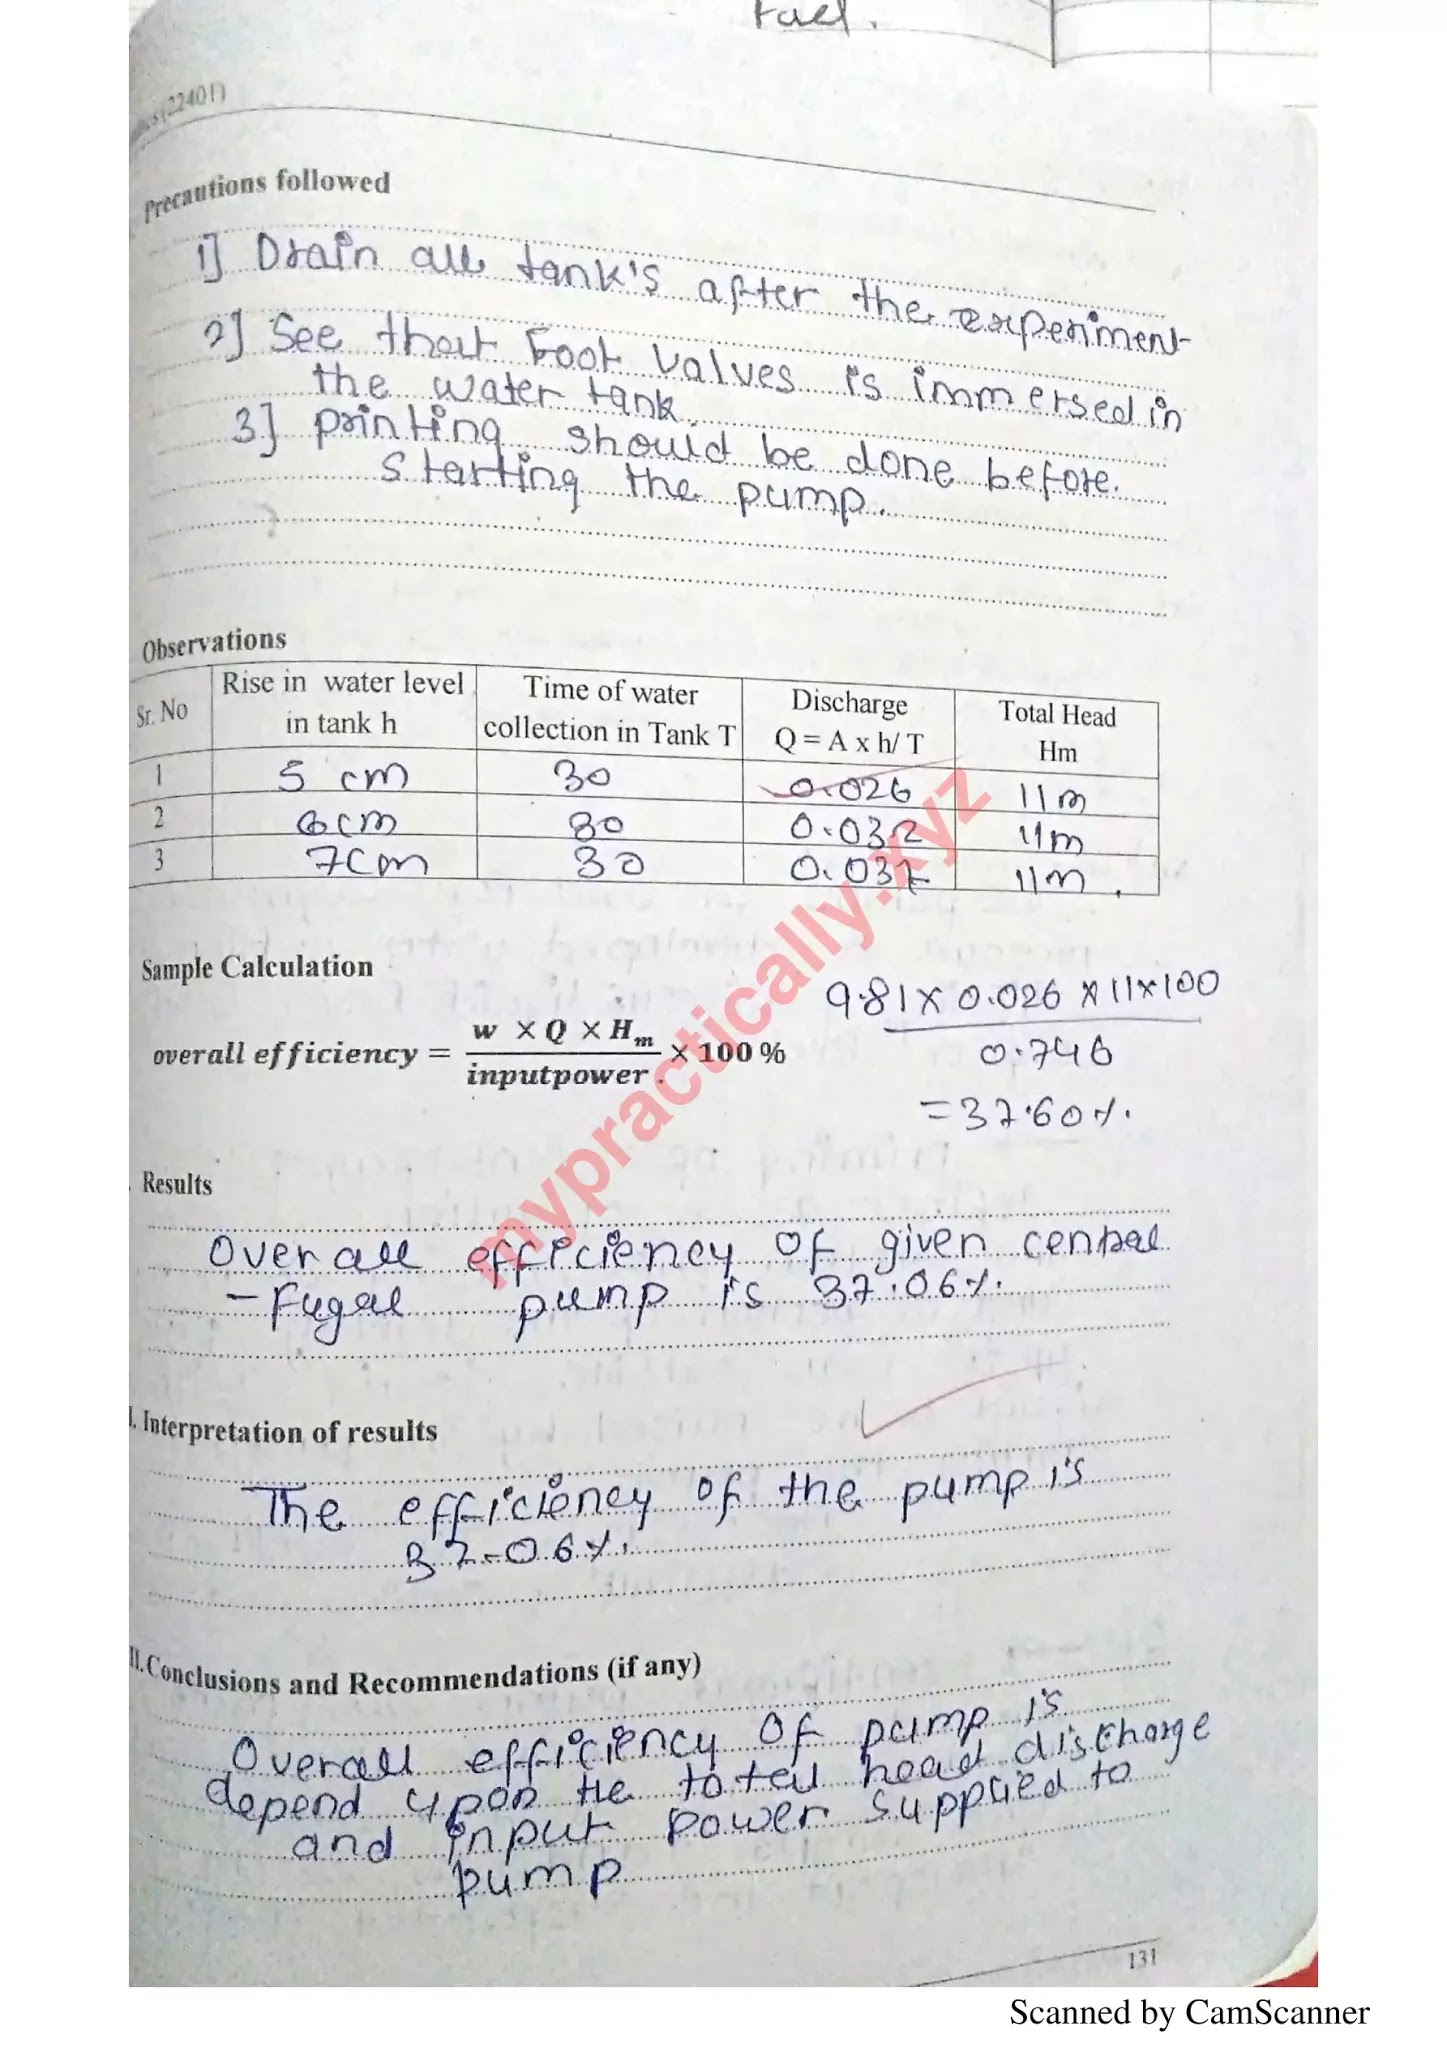 Fuel.
(22401)
Precautions followed
1] Drain all tank's after the experiment
2] See that Foot Valves is immersed in
the water tank.
3] printing should be done before
starting the pump.
Observations
Sr. No Rise in water level in tank h Time of water collection in Tank T Discharge Q = A x h/ T Total Head Hm
1 5 cm 30 0.026 11m
2 6cm 30 0.032 11m
3 7cm 30 0.037 11m
Sample Calculation
9.81 x 0.026 x 11x100
0.746
= 37.60%.
overall efficiency = w × Q × Hm / inputpower . × 100 %
Results
Overall efficiency of given cental
-fugal pump is 37.06%.
I. Interpretation of results
The efficiency of the pump is
37.06%.
II. Conclusions and Recommendations (if any)
Overall efficiency of pump is
depend upon the total head discharge
and input power supplied to
pump
131
mypractically.xyz
Scanned by CamScanner